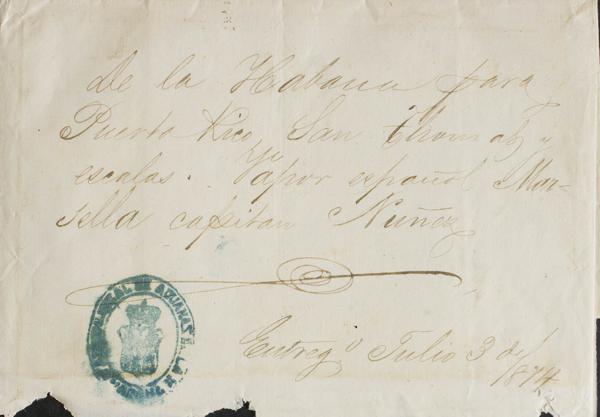 De la Habana para
Puerto Rico, San Thomas y
escalas. Vapor español Mar-
sella capitan Nuñez
Entregº Julio 3 de/
1874
ADUANAS